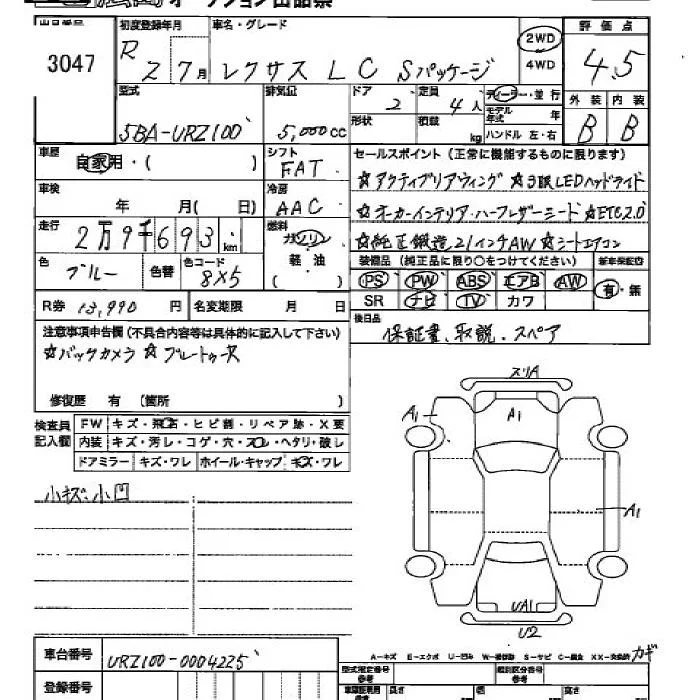 オークション出品票
出品番号 初度登録年月 車名・グレード 評価点
3047 R 2 7月 レクサス LC Sパッケージ 2WD 4WD 4.5
型式 排気量 ドア 定員 ディーラー・並行 外装 内装
5BA-URZ100 5,000cc 2 4人 モデル年式 年 B B
形状 積載 kg ハンドル 左・右
車歴 自家用・( ) シフト FAT セールスポイント (正常に機能するものに限ります)
☆アクティブリアウィング ☆3眼LEDヘッドライト
車検 年 月( 日) 冷房 AAC ☆オーカーインテリア・ハーフレザーシート ☆ETC2.0
走行 2万9千693km 燃料 ガソリン 軽・油 ( ) ☆純正鍛造21インチAW ☆シートエアコン
色 ブルー 色替 色コード 8X5 装備品 (純正品に限り○をつけてください) 新車保証書
PS PW ABS エアB AW 有・無
SR ナビ TV カワ
R券 13,990円 名変期限 月 日 後日品
保証書、取説、スペア
注意事項申告欄 (不具合内容等は具体的に記入して下さい)
☆バックカメラ ☆ブレートゥース
修復歴 有 (箇所 )
検査員記入欄 FW キズ・飛石・ヒビ割・リペア跡・X要
内装 キズ・汚レ・コゲ・穴・スレ・ヘタリ・破レ
ドアミラー キズ・ワレ ホイール・キャップ キズ・ワレ
小キズ・小凹
スリA
A1 A1
A1
UA1
U2
A-キズ E-エクボ U-凹み W-補修跡 S-サビ C-腐食 XX-交換済 カギ
車台番号 URZ100-0004225 型式指定番号 参考 類別区分番号 参考
登録番号 長さ 幅 高さ